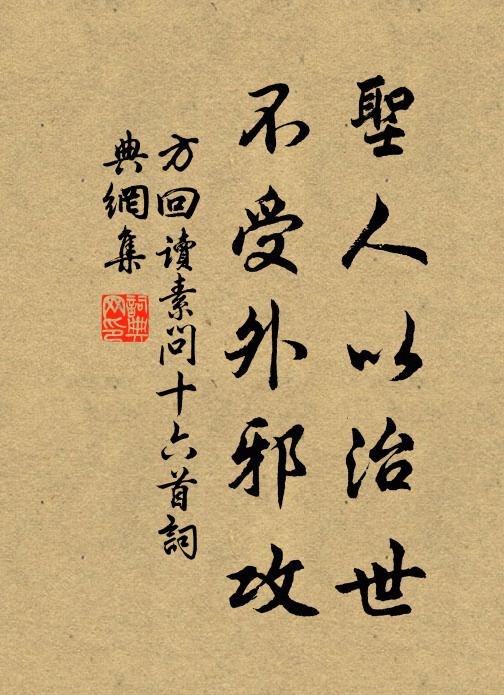 聖人以治世
不受外邪攻
方回讀素問十六首詞
典網集
詞典網印